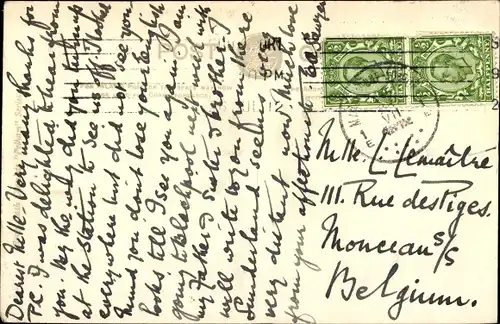 Dearest Mlle. Very many thanks for
P.C. I was delighted to hear from
you. By the way did you turn up
at the Station to see us off. I looked
everywhere but did not see you
Mind you don't lose your English
looks till I see you again. I am
going to Blackpool next week with
my Father, Sister & brother. I
will write to you from there
Sunderland seems
very distant now. Much love
from your affectionate
POST
JUL 12
Mlle. L. Lemaître
111. Rue des Tiges.
Monceau s/s
Belgium.